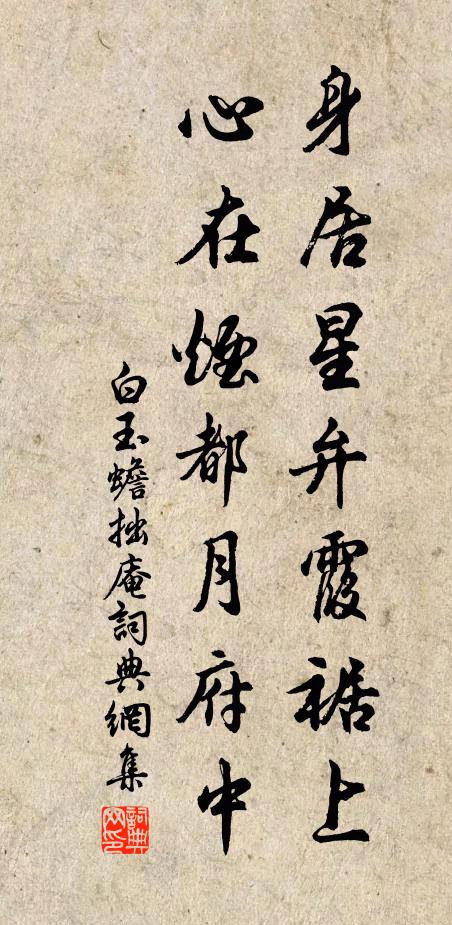 身居星弁霞裾上
心在煙都月府中
白玉蟾拙庵詞典網集
詞典网印